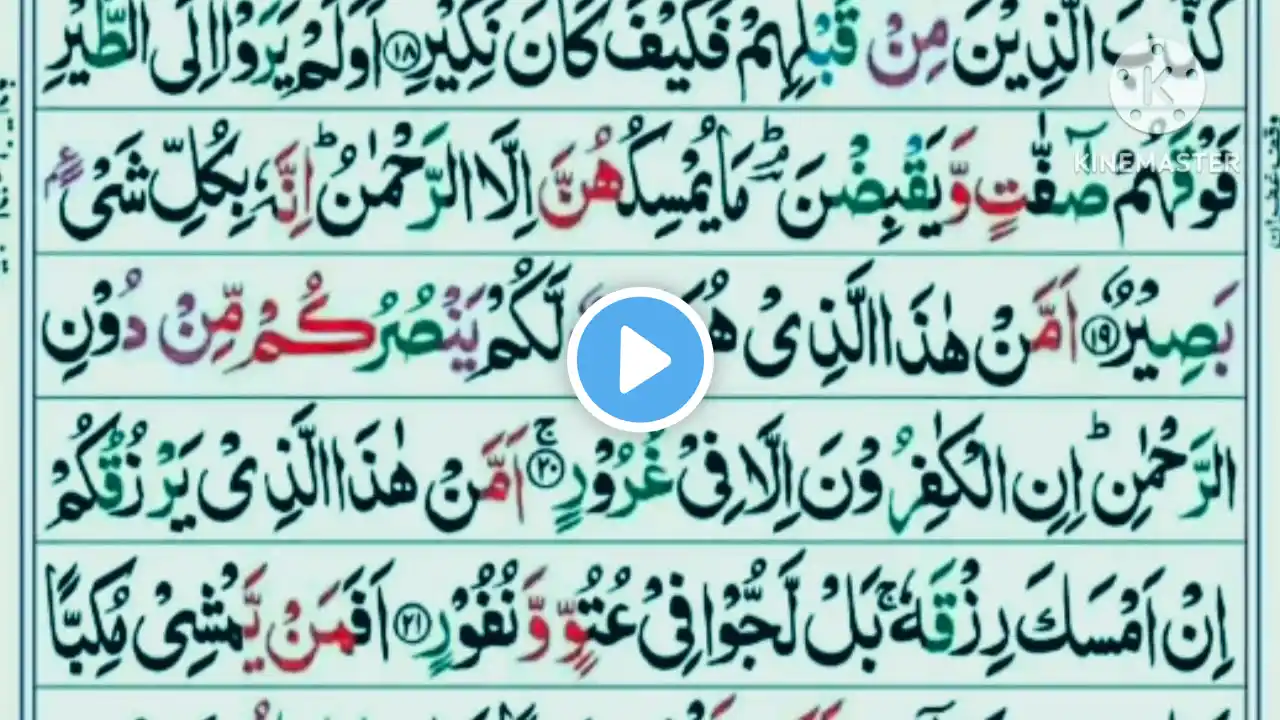 كَذَّبَ الَّذِيْنَ مِنْ قَبْلِهِمْ فَكَيْفَ كَانَ نَكِيْرِ ۝۱۸ اَوَلَمْ يَرَوْا اِلَى الطَّيْرِ
فَوْقَهُمْ صٰٓفّٰتٍ وَّيَقْبِضْنَ ۘؕ مَا يُمْسِكُهُنَّ اِلَّا الرَّحْمٰنُ ؕ اِنَّهٗ بِكُلِّ شَيْءٍۭ
بَصِيْرٌ ۝۱۹ اَمَّنْ هٰذَا الَّذِيْ هُوَ لَّكُمْ يَنْصُرُكُمْ مِّنْ دُوْنِ
الرَّحْمٰنِ ؕ اِنِ الْكٰفِرُوْنَ اِلَّا فِيْ غُرُوْرٍ ۚ۝۲۰ اَمَّنْ هٰذَا الَّذِيْ يَرْزُقُكُمْ
اِنْ اَمْسَكَ رِزْقَهٗ ۚ بَلْ لَّجُّوْا فِيْ عُتُوٍّ وَّنُفُوْرٍ ۝۲۱ اَفَمَنْ يَّمْشِيْ مُكِبًّا
KINEMASTER